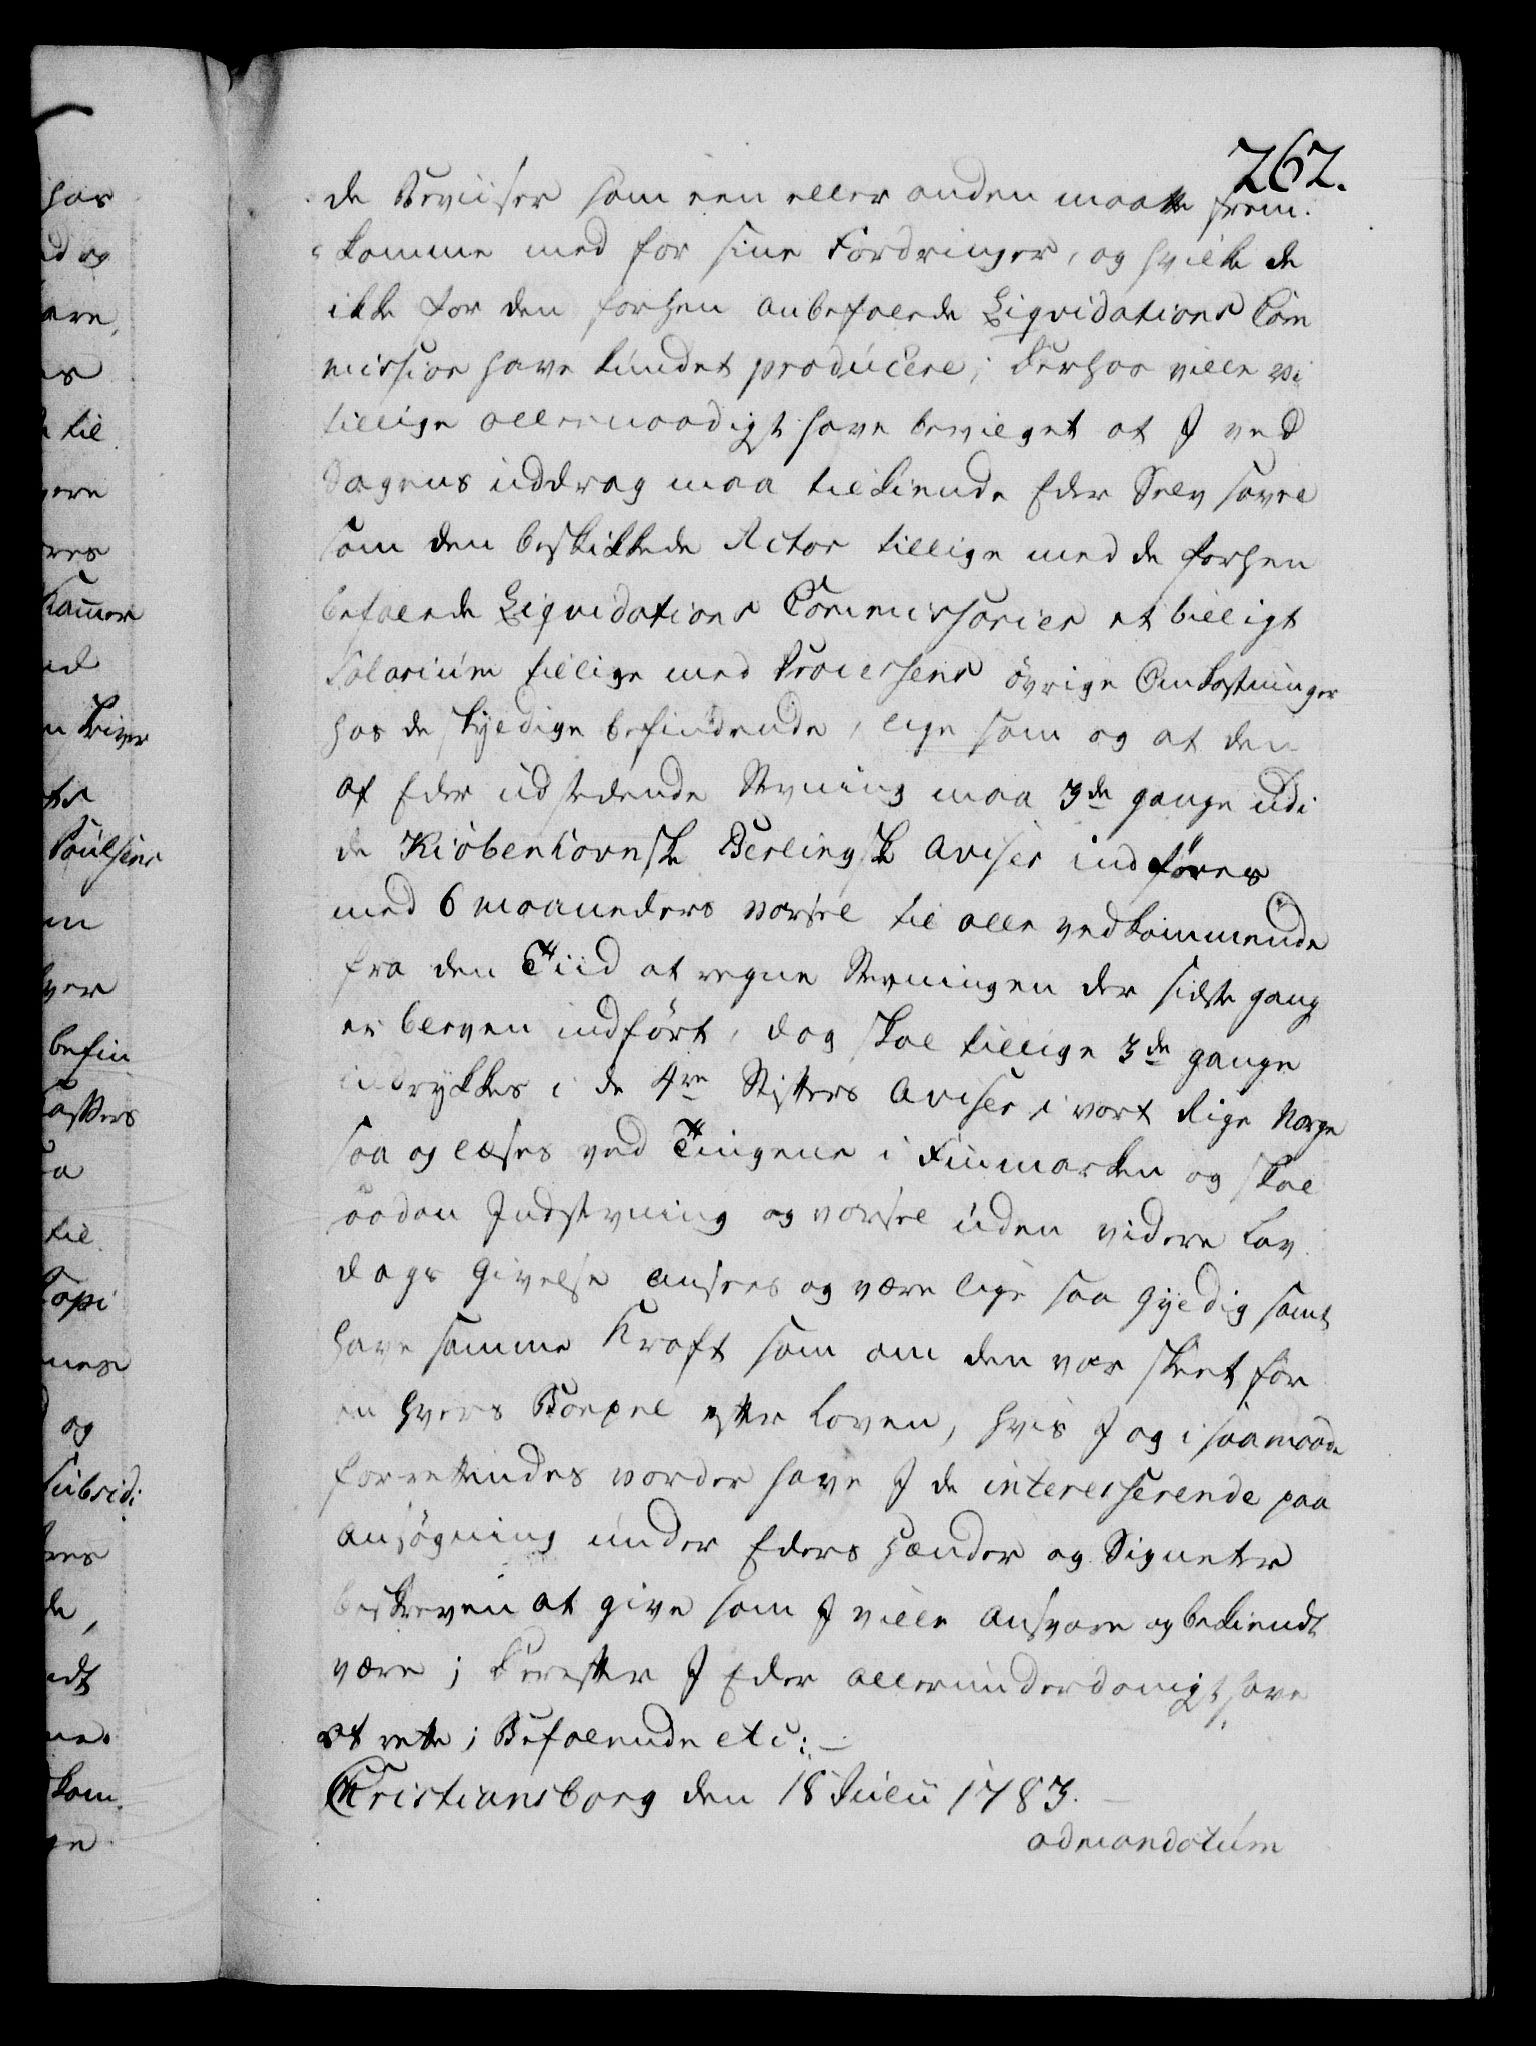 262.
de Beviiser som een eller anden maatte frem-
komme med for sine Fordringer, og hvilke de
ikke for den forhen anbefalede Liqvidations Com
mission have kundet producere; derhos ville vi
tillige allernaadigst have bevilget at I ved
Sagens uddrag maa tilkiende Eder Selv savel
som den beskikkede Actor tillige med de forhen
befalede Liqvidations Commissarier et billigt
Salarium tillige med Processens övrige Omkostninger
hos de skyldige befindende, lige som og at den
af Eder udstedende Stevning maa 3de gange udi
de Kiöbenhavnske Berlingske Aviser indføres
med 6 maaneders varsel til alle vedkommende
fra den Tiid at regne Stevningen der sidste gang
er bleven indført, dog skal tillige 3de gange
indrykkes i de 4re Stifters Aviser i vort Rige Norge
saa og læses ved Tingene i Finmarken og skal
saadan Indstevning og varsel uden videre Lav
dags Givelse ansees og være lige saa Gyldig samt
have samme Kraft som om den var skeet for
en hvers Boepæl efter Loven, hvis I og i saamaade
forrettendes vorder have I de interesserende paa
ansøgning under Eders Hænder og Signeter
beskreven at give som I ville ansvare og bekiendt
være; derefter I Eder allerunderdanigst have
at rette; Befalende etc:
Christiansborg den 18 Julii 1783.
admandatum
har
til
Kammer
Poulsens
befin
til
Copi
og
Subsidi
kom